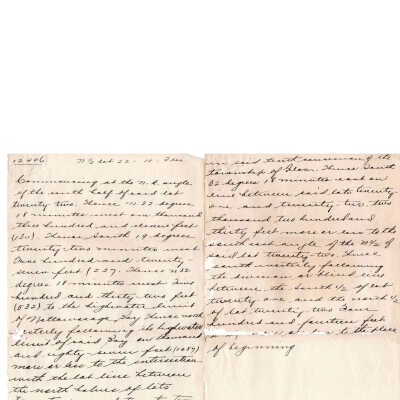 12406 N½ Lot 22 - 10 -
Commencing at the N.E. angle
of the north half of said lot
twenty two. Thence N. 22 degrees
18 minutes west one thousand
three hundred and eleven feet
Thence South 19 degrees
twenty-two minutes west
Two hundred and twenty-
seven feet (227. Thence N12
degrees 18 minutes west Five
hundred and thirty two feet
(532) to the highwater limit
of Bay Thence north
westerly following the highwater
limit of said Bay one thousand
and eighty-seven feet (1087)
more or less to the intersection
with the lot line between
the north halves of lots
in said tenth concession of the
township of Thence South
22 degrees 18 minutes east on
line between said lots twenty
one and twenty two two
thousand two hundred and
thirty feet more or less to the
south east angle of the N½ of
said lot twenty two. Thence
south westerly following
the division or blind line
between the south ½ of lot
twenty one and the north ½
of lot twenty two Four
hundred and fourteen feet
to the place
of beginning